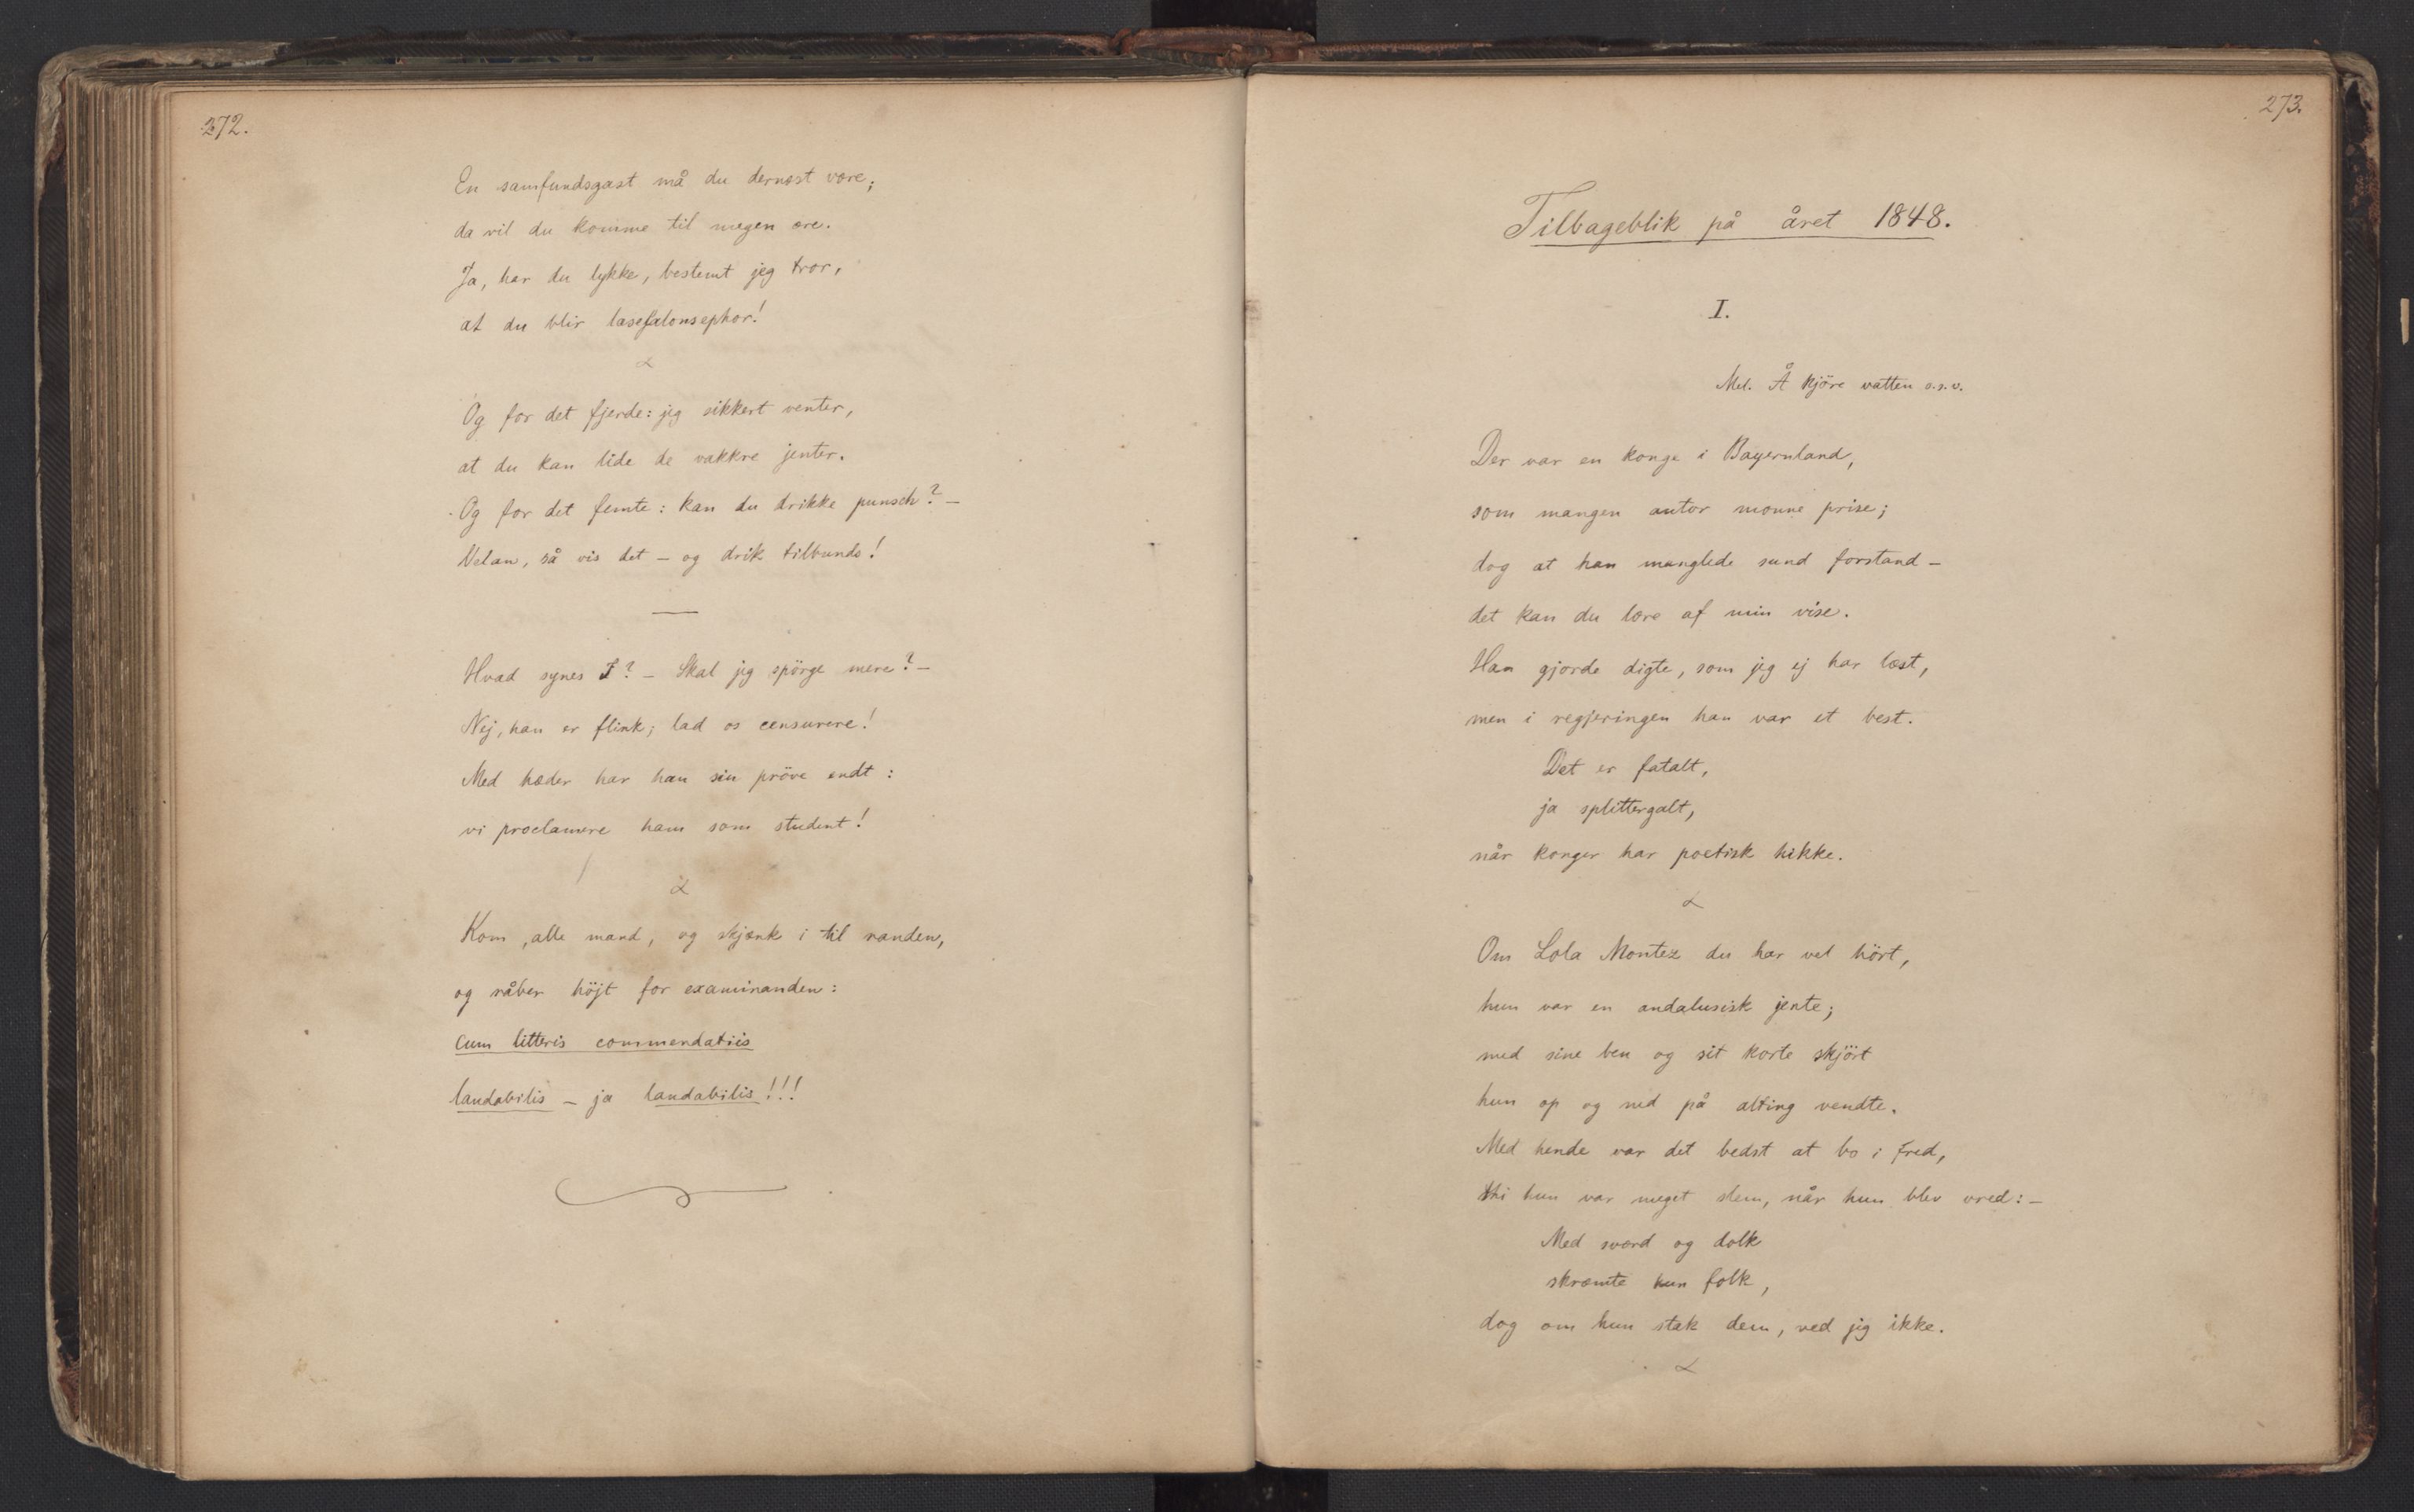 272.
En samfundsgast må du dernæst være;
da vil du komme til megen ære.
Ja, har du lykke, bestemt jeg tror,
at du blir læsesalonsephor!
Og for det fjerde: jeg sikkert venter,
at du kan lide de vakkre jenter.
Og for det femte: kan du drikke punsch? –
Velan, så vis det – og drik tilbunds!
Hvad synes I? – Skal jeg spörge mere? –
Nej, han er flink; lad os censurere!
Med hæder har han sin pröve endt:
vi proclamere ham som student!
Kom, alle mand, og skjænk i til randen,
og råber höjt for examinanden:
cum litteris commendatiis
laudabilis – ja laudabilis!!!
273.
Tilbageblik på året 1848.
I.
Mel. Å kjöre vatten o.s.v.
Der var en konge i Bayernland,
som mangen autor monne prise;
dog at han manglede sund forstand –
det kan du lære af min vise.
Han gjorde digte, som jeg ej har læst,
men i regjeringen han var et best.
Det er fatalt,
ja splittergalt,
når konger har poetisk hikke.
Om Lola Montez du har vel hört,
hun var en andalusisk jente;
med sine ben og sit korte skjört
hun op og ned på alting vendte.
Med hende var det bedst at bo i fred,
thi hun var meget slem, når hun blev vred: –
Med sværd og dolk
skræmte hun folk,
dog om hun stak dem, ved jeg ikke.